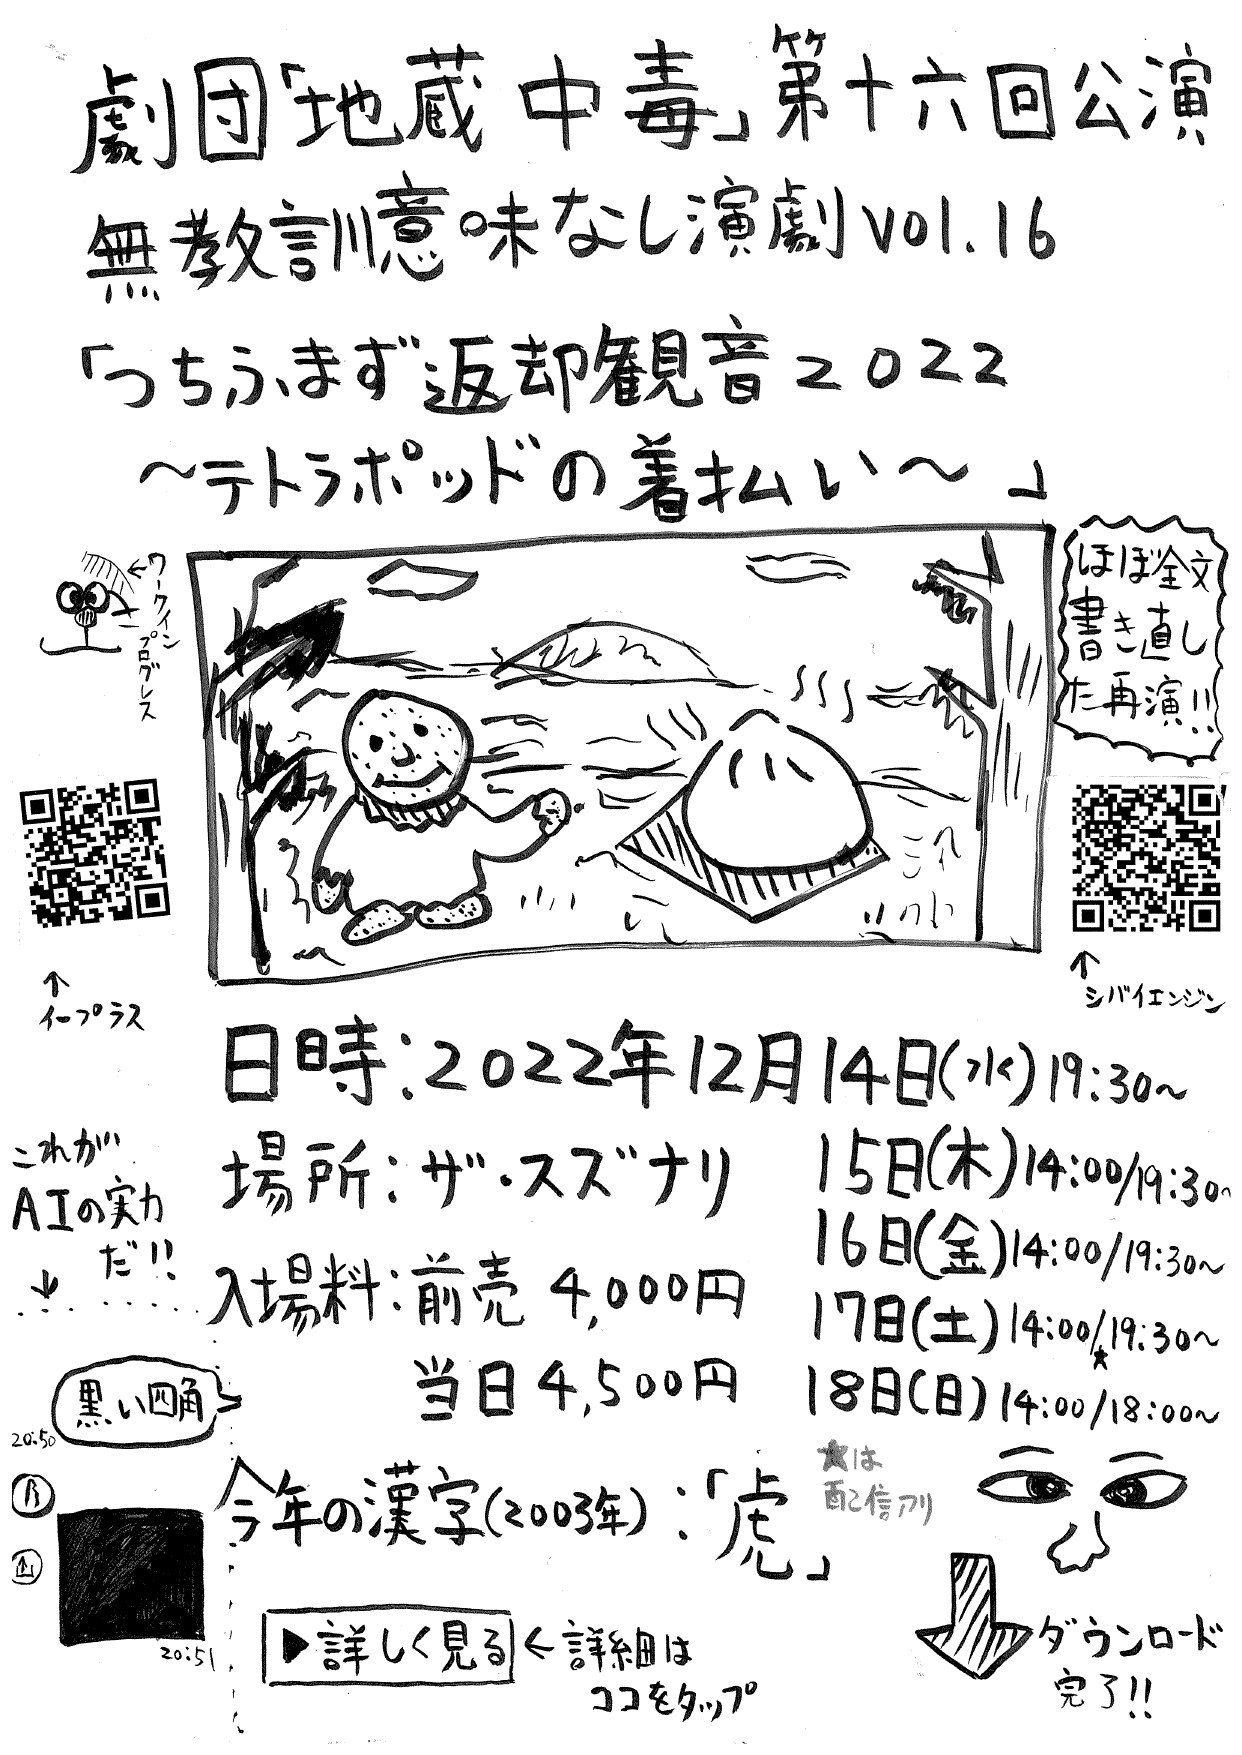 劇団「地蔵中毒」第十六回公演
無教訓意味なし演劇vol.16
「つちふまず返却観音2022
～テトラポッドの着払い～」
ワークイン
プログレス
ほぼ全文
書き直し
た再演!!
↑
イープラス
↑
シバイエンジン
日時:2022年12月14日(水)19:30～
15日(木)14:00/19:30～
16日(金)14:00/19:30～
17日(土)14:00/19:30～
★
18日(日)14:00/18:00～
★は
配信アリ
場所:ザ・スズナリ
入場料:前売 4,000円
当日 4,500円
これが
AIの実力
だ!!
↓
黒い四角
20:50
20:51
今年の漢字(2003年):「虎」
▶詳しく見る
←詳細は
ココをタップ
ダウンロード
完了!!